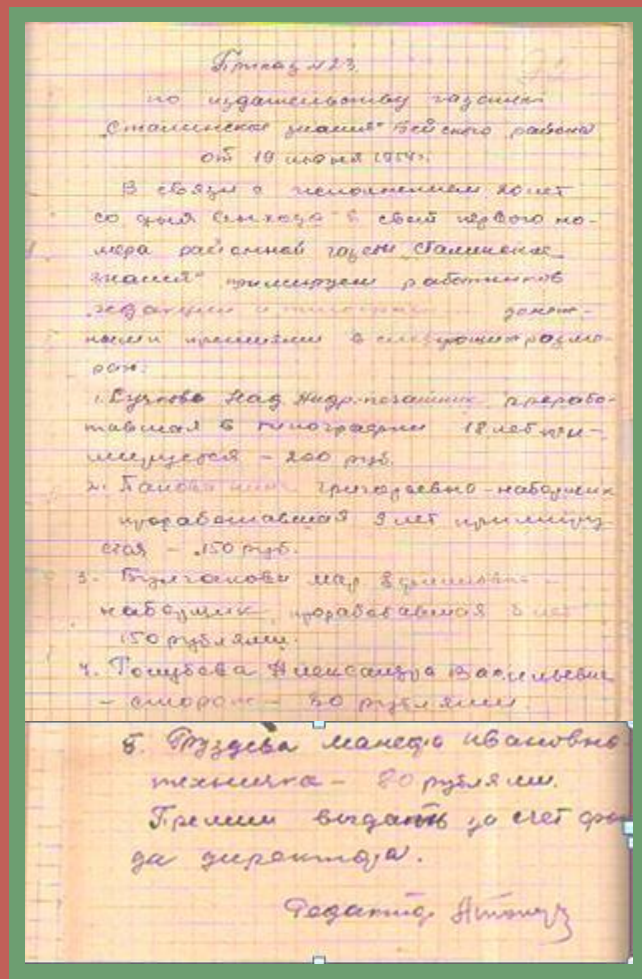 Приказ №23.
по издательству газеты
„Сталинское знамя" Бейского района
от 19 июня 1954г.
В связи с исполнением 20 лет
со дня выхода в свет первого но-
мера районной газеты „Сталинское
знамя" примируем работников
редакции и денеж-
ными премиями в следующих разме-
рах:
1. Над. Андр. проработ-
тавшая в типографии 18 лет при-
мируется – 200 руб.
2. Григорьевна – наборщик
проработавшая 9 лет примиру-
ется – 150 руб.
3. Булгакова Мар.
наборщик, проработавшая 8 лет
150 рублями.
4. Голубева Александра Васильевна
– сторож – 80 рублями.
5. Груздева Ивановна
техничка – 80 рублями.
Премии выдать за счет фон
да директора.
Редактор